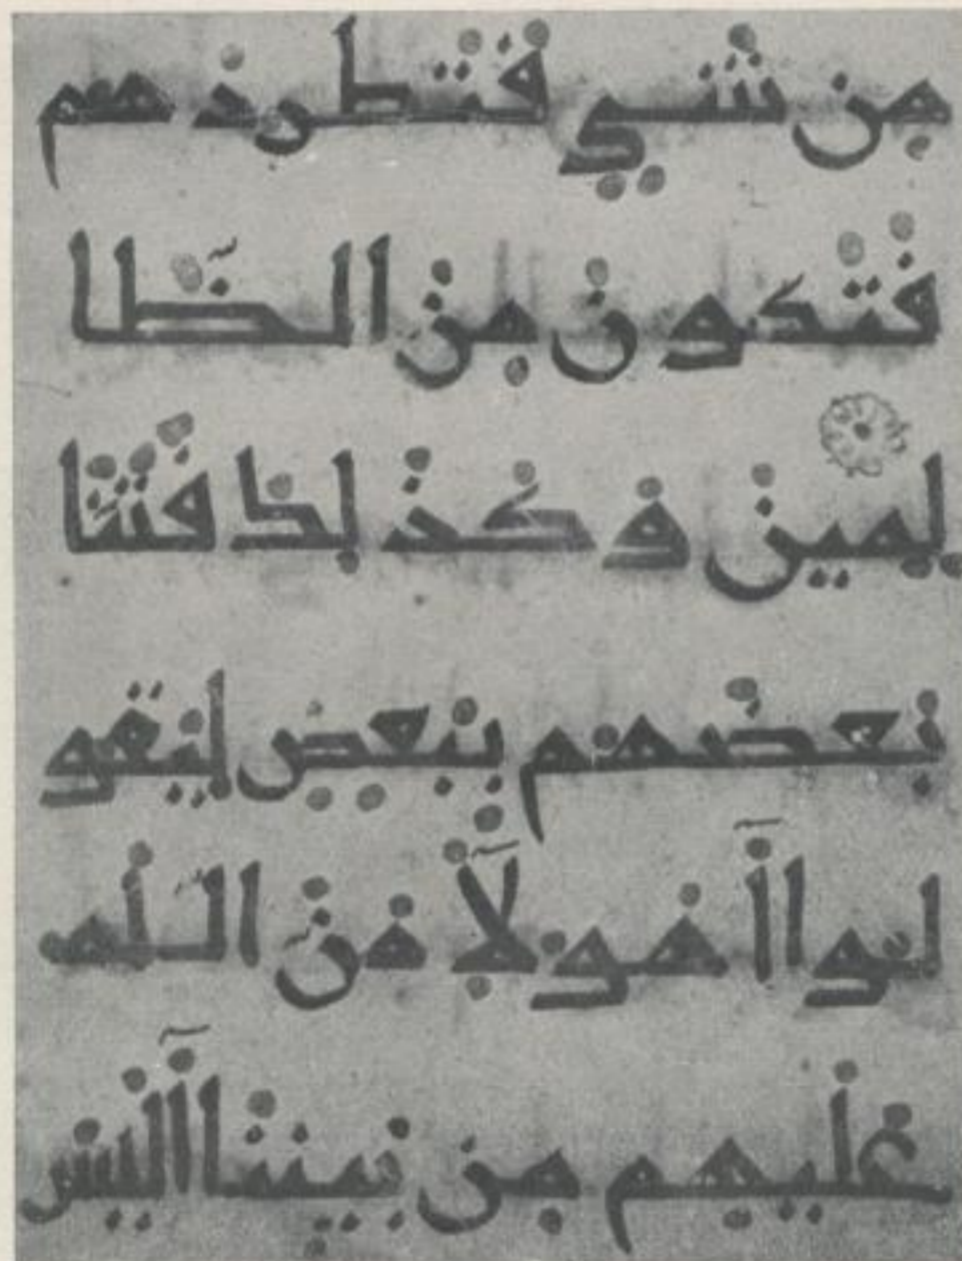 من شي فتطردهم
فتكون من الظا
لمين وكذلك فتنا
بعضهم ببعض ليقو
لوا اهولا من الله
عليهم من بيننا اليس